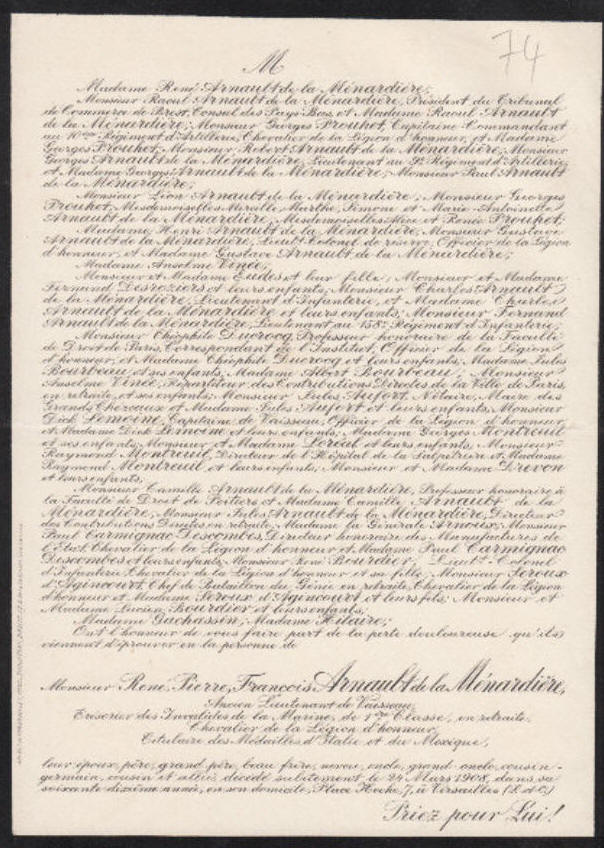 74
M
Madame René Arnault de la Ménardière;
Monsieur Raoul Arnault de la Ménardière, Président du Tribunal
de Commerce de Brest, Consul des Pays-Bas, et Madame Raoul Arnault
de la Ménardière; Monsieur Georges Prouhet, Capitaine Commandant
au 10ème Régiment d'Artillerie, Chevalier de la Légion d'honneur, et Madame
Georges Prouhet; Monsieur Robert Arnault de la Ménardière; Monsieur
Georges Arnault de la Ménardière, Lieutenant au Régiment d'Artillerie,
et Madame Georges Arnault de la Ménardière; Monsieur Paul Arnault
de la Ménardière;
Monsieur Léon Arnault de la Ménardière; Monsieur Georges
Prouhet; Mesdemoiselles Mireille, Marthe, Simone et Marie-Antoinette
Arnault de la Ménardière; Mesdemoiselles Alice et Renée Prouhet;
Madame Henri Arnault de la Ménardière; Monsieur Gustave
Arnault de la Ménardière, Lieut-Colonel de réserve, Officier de la Légion
d'honneur, et Madame Gustave Arnault de la Ménardière;
Madame Anselme Vincé;
Monsieur et Madame Eudes et leur fille; Monsieur et Madame
Fernand Desroziers et leurs enfants; Monsieur Charles Arnault
de la Ménardière, Lieutenant d'Infanterie, et Madame Charles
Arnault de la Ménardière et leurs enfants; Monsieur Fernand
Arnault de la Ménardière, Lieutenant au 158e Régiment d'Infanterie;
Monsieur Théophile Ducrocq, Professeur honoraire de la Faculté
de Droit de Paris, Correspondant de l'Institut, Officier de la Légion
d'honneur, et Madame Théophile Ducrocq et leurs enfants; Madame Jules
Bourbeau et ses enfants; Madame Albert Bourbeau; Monsieur
Anselme Vincé, Répartiteur des Contributions Directes de la Ville de Paris,
en retraite, et ses enfants; Monsieur Jules Aufort, Notaire, Maire des
Grands Chézeaux et Madame Jules Aufort et leurs enfants; Monsieur
Dick Lemoine, Capitaine de Vaisseau, Officier de la Légion d'honneur
et Madame Dick Lemoine et leurs enfants; Madame Georges Montreuil
et ses enfants; Monsieur et Madame Loreal et leurs enfants; Monsieur
Raymond Montreuil, Directeur de l'Hôpital de la Salpêtrière et Madame
Raymond Montreuil et leurs enfants; Monsieur et Madame Drevon
et leurs enfants;
Monsieur Camille Arnault de la Ménardière, Professeur honoraire à
la Faculté de Droit de Poitiers et Madame Camille Arnault de la
Ménardière; Monsieur Jules Arnault de la Ménardière, Directeur
des Contributions Directes en retraite; Madame la Générale Arnoux; Monsieur
Paul Carmignac Descombes, Directeur honoraire des Manufactures de
l'Etat, Chevalier de la Légion d'honneur et Madame Paul Carmignac
Descombes et leurs enfants; Monsieur René Bourdier, Lieut-Colonel
d'Infanterie, Chevalier de la Légion d'honneur et sa fille; Monsieur Seroux
d'Agincourt, Chef de Bataillon du Génie en retraite, Chevalier de la Légion
d'honneur et Madame Seroux d'Agincourt et leurs fils; Monsieur et
Madame Lucien Bourdier et leurs enfants;
Madame Gachassin; Madame Hilaire;
Ont l'honneur de vous faire part de la perte douloureuse qu'ils
viennent d'éprouver en la personne de
Monsieur René, Pierre, François Arnault de la Ménardière,
Ancien Lieutenant de Vaisseau,
Trésorier des Invalides de la Marine, de 1ère Classe, en retraite,
Chevalier de la Légion d'honneur,
Titulaire des Médailles d'Italie et du Mexique,
leur époux, père, grand'père, beau frère, neveu, oncle, grand-oncle, cousin-
germain, cousin et allié, décédé subitement le 24 Mars 1908, dans sa
soixante dixième année, en son domicile, Place Hoche, 7, à Versailles (S. et O.)
Priez pour Lui!